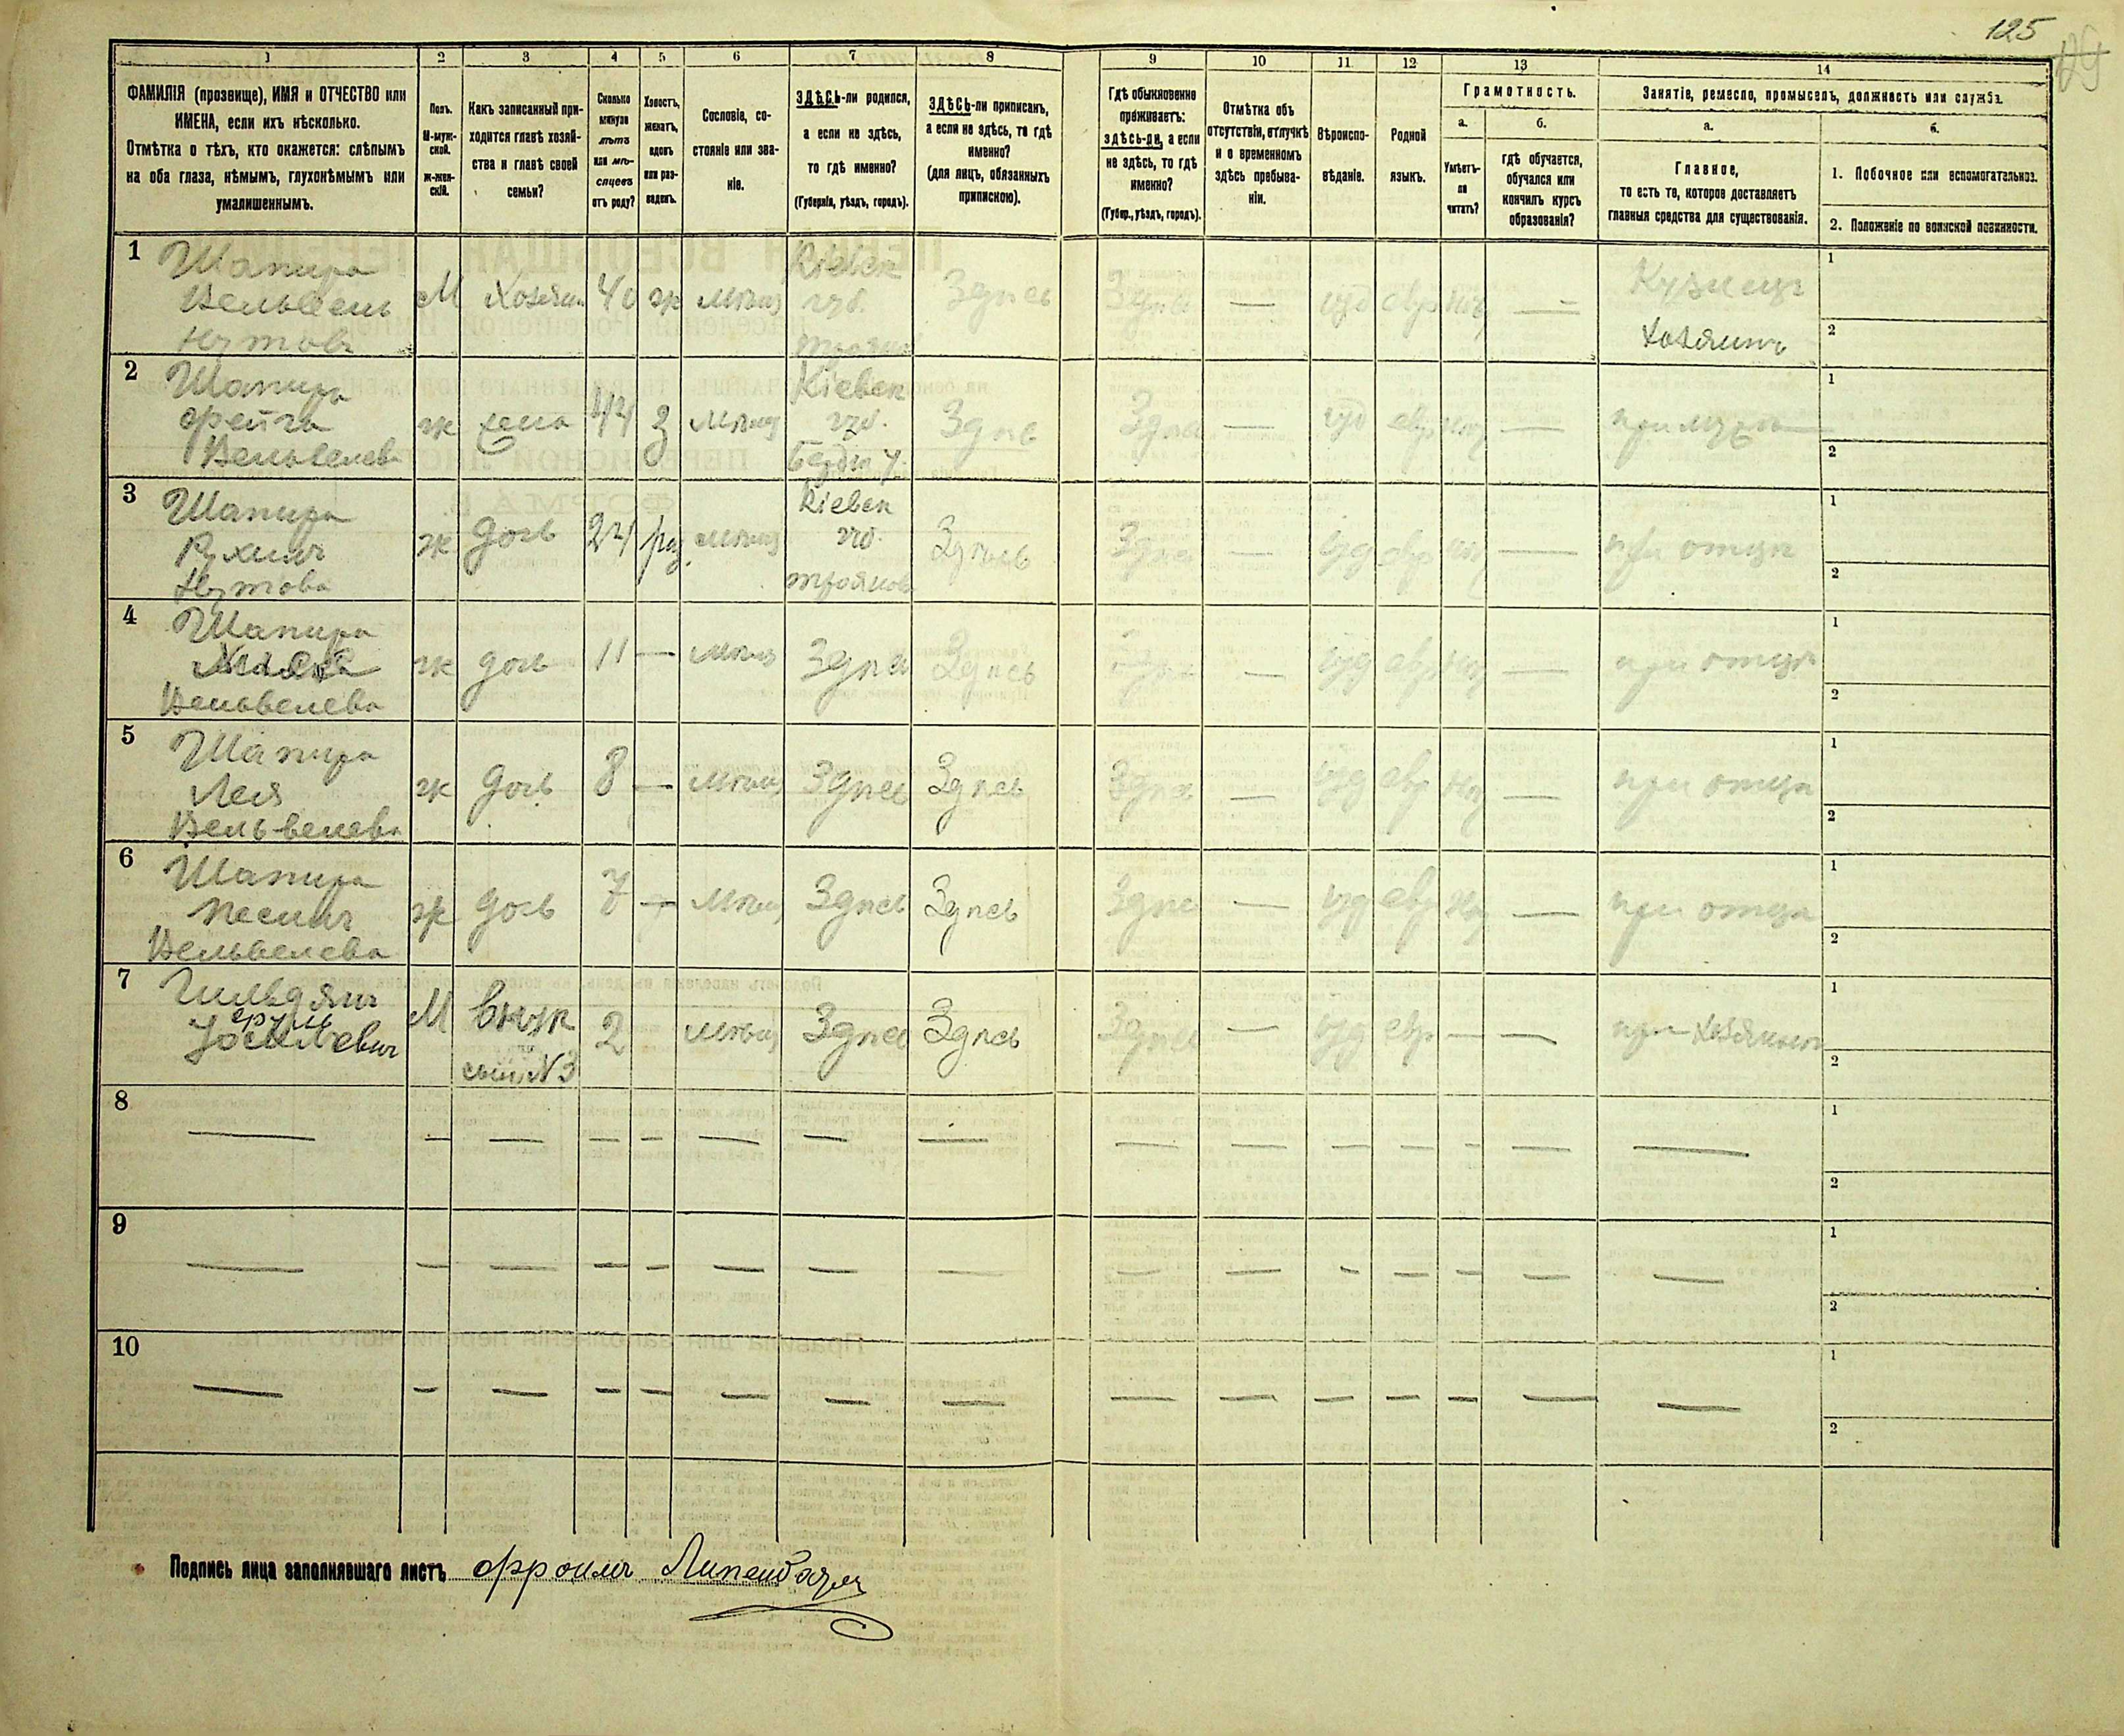 125
1 2 3 4 5 6 7 8 9 10 11 12 13 14
ФАМИЛІЯ (прозвище), ИМЯ и ОТЧЕСТВО или
ИМЕНА, если ихъ нѣсколько.
Отмѣтка о тѣхъ, кто окажется: слѣпымъ
на оба глаза, нѣмымъ, глухонѣмымъ или
умалишеннымъ.
Полъ.
М-муж-
ской.
ж-жен-
скій.
Какъ записанный при-
ходится главѣ хозяй-
ства и главѣ своей
семьи?
Сколько
минуло
лѣтъ
или мѣ-
сяцевъ
отъ роду?
Холостъ,
женатъ,
вдовъ
или раз-
веденъ.
Сословіе, со-
стояніе или зва-
ніе.
ЗДѢСЬ-ли родился,
а если не здѣсь,
то гдѣ именно?
(Губернія, уѣздъ, городъ).
ЗДѢСЬ-ли приписанъ,
а если не здѣсь, то гдѣ
именно?
(для лицъ, обязанныхъ
припискою).
Гдѣ обыкновенно
проживаетъ:
здѣсь-ли, а если
не здѣсь, то гдѣ
именно?
(Губер., уѣздъ, городъ).
Отмѣтка объ
отсутствіи, отлучкѣ
и о временномъ
здѣсь пребыва-
ніи.
Вѣроиспо-
вѣданіе.
Родной
языкъ.
Грамотность.
а.
Умѣетъ-
ли
читать?
б.
гдѣ обучается,
обучался или
кончилъ курсъ
образованія?
Занятіе, ремесло, промыселъ, должность или служба.
а.
Главное,
то есть то, которое доставляетъ
главныя средства для существованія.
б.
1. Побочное или вспомогательное.
2. Положеніе по воинской повинности.
1 Шапира М Хозяин 40 ж мѣщ Кіевск Здѣсь Здѣсь — іуд евр нѣт — Кузнецъ 1
Вельвель губ.
Нутовъ Хозяинъ 2
2 Шапира ж жена 44 з мѣщ Кіевск Здѣс Здѣс — іуд евр нѣт — при мужѣ 1
Фейга губ.
Вельвелева 2
3 Шапира ж дочь 24 раз. мѣщ Кіевск Здѣсь Здѣс — іуд евр нѣт — при отцѣ 1
Рухля губ.
Нутова Троянов 2
4 Шапира ж дочь 11 — мѣщ Здѣс Здѣсь Здѣс — іуд евр нѣт — при отцѣ 1
Вельвелева 2
5 Шапира ж дочь 8 — мѣщ Здѣсь Здѣсь Здѣс — іуд евр нѣт — при отцѣ 1
Лея
Вельвелева 2
6 Шапира ж дочь 7 — мѣщ Здѣсь Здѣсь Здѣс — іуд евр нѣт — при отцѣ 1
Песля
Вельвелева 2
7 М внук 2 мѣщ Здѣсь Здѣсь Здѣсь — іуд евр — — при хозяинѣ 1
сын N 3 2
8 — — — — — — — — — — — — — — — 1
2
9 — — — — — — — — — — — — — — — 1
2
10 — — — — — — — — — — — — — — — 1
2
Подпись лица заполнявшаго листъ Фроимъ